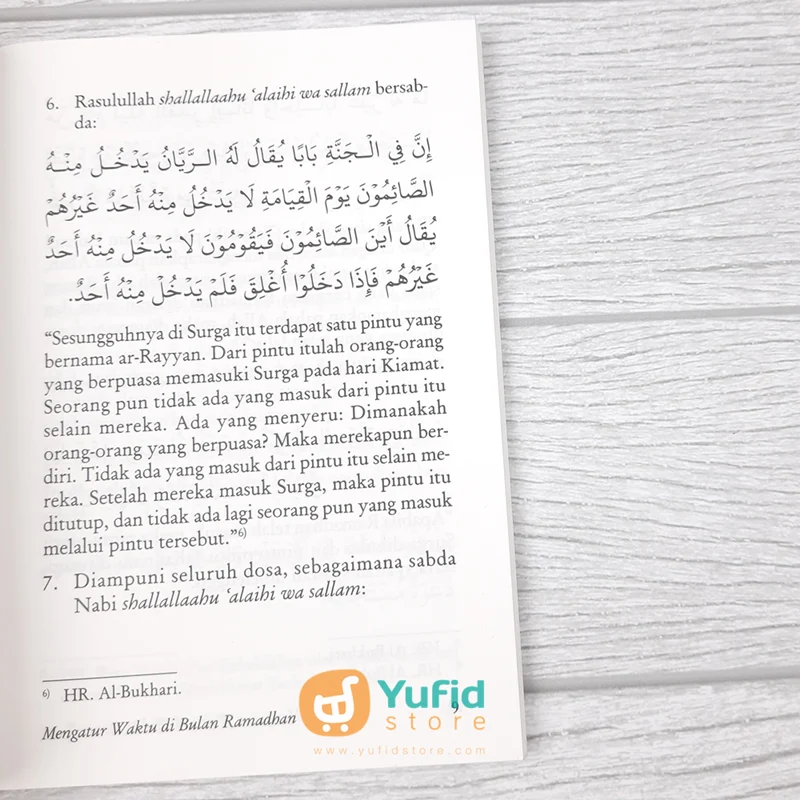 6. Rasulullah shallallaahu ‘alaihi wa sallam bersab-
da:
إِنَّ فِي الْـجَنَّةِ بَابًا يُقَالُ لَهُ الـرَّيَّانُ يَدْخُـلُ مِنْـهُ
الصَّائِمُوْنَ يَوْمَ الْقِيَامَةِ لَا يَدْخُلُ مِنْهُ أَحَدٌ غَيْرُهُمْ
يُقَالُ أَيْنَ الصَّائِمُوْنَ فَيَقُوْمُوْنَ لَا يَدْخُلُ مِنْهُ أَحَدٌ
غَيْرُهُمْ فَإِذَا دَخَلُوْا أُغْلِقَ فَلَمْ يَدْخُلْ مِنْهُ أَحَدٌ.
“Sesungguhnya di Surga itu terdapat satu pintu yang
bernama ar-Rayyan. Dari pintu itulah orang-orang
yang berpuasa memasuki Surga pada hari Kiamat.
Seorang pun tidak ada yang masuk dari pintu itu
selain mereka. Ada yang menyeru: Dimanakah
orang-orang yang berpuasa? Maka merekapun ber-
diri. Tidak ada yang masuk dari pintu itu selain me-
reka. Setelah mereka masuk Surga, maka pintu itu
ditutup, dan tidak ada lagi seorang pun yang masuk
melalui pintu tersebut.”6)
7. Diampuni seluruh dosa, sebagaimana sabda
Nabi shallallaahu ‘alaihi wa sallam:
6) HR. Al-Bukhari.
Mengatur Waktu di Bulan Ramadhan 9
Yufid
store
www.yufidstore.com